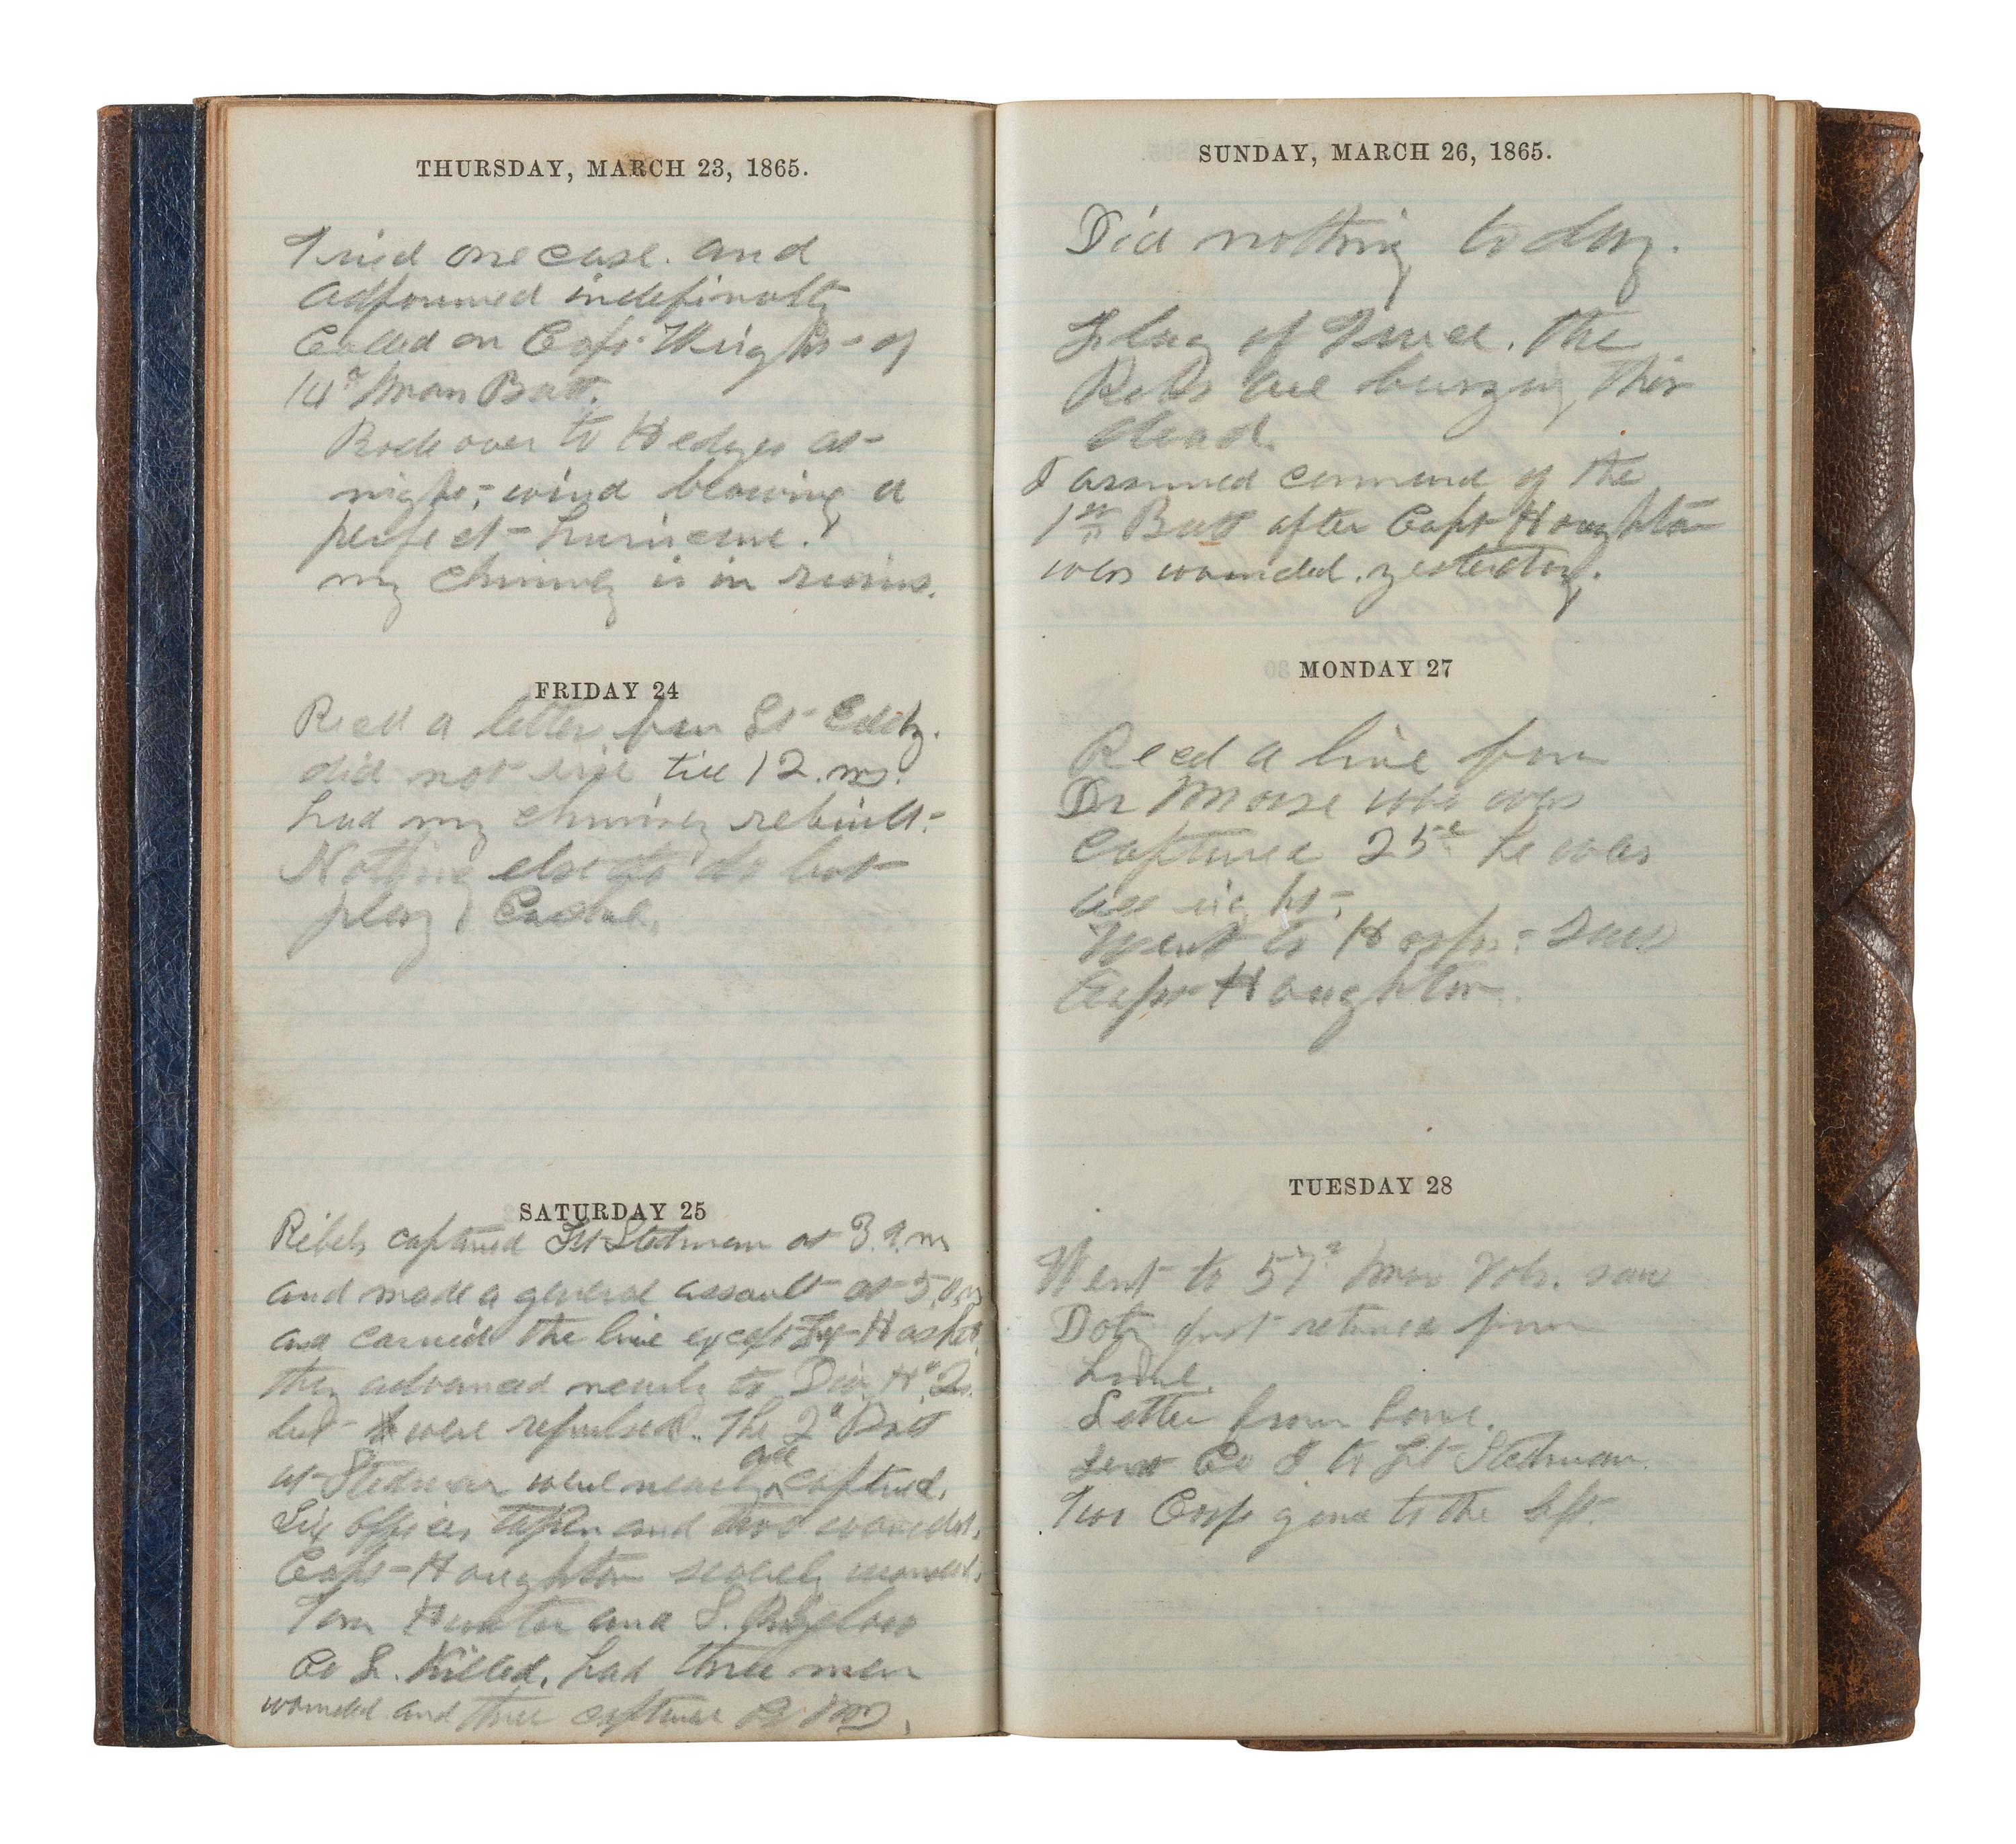 THURSDAY, MARCH 23, 1865.
Tried one case. and
adjourned indefinitly
Called on Capt. Wright of
14th Mass Batt.
Rode over to Hedges at
night; wind blowing a
perfect hurricane.
my chimney is in ruins.
FRIDAY 24
Recd a letter from Lt Eddy.
did not rise till 12. m.
had my chimney rebuilt.
Nothing else to do but
play
SATURDAY 25
Rebels captured Ft Stedman at 3. a.m
and made a general assault at 5. a.m
and carried the line except Ft Haskel
they advanced nearly to Div. Hd Qs.
but were repulsed. The 2d Batt
at Stedman were nearly all captured.
Six officers taken and two wounded.
Capt Houghton severely wounded.
Tom Hunter and S. Bigelow
Co L. Killed. had three men
wounded and three captured
SUNDAY, MARCH 26, 1865.
Did nothing to day.
Flag of Truce. The
Rebs are burying thir
dead.
I assumed command of the
1st Batt after Capt Houghton
was wounded. yesterday.
MONDAY 27
Recd a line from
Dr Morse who was
captured 25th he was
all right.
Went to Hosp. Saw
Capt Houghton.
TUESDAY 28
Went to 57th Mass Vols. saw
Doty just returned from
home.
Letter from home.
sent Co I. to Ft Stedman.
Two Corps gone to the left.